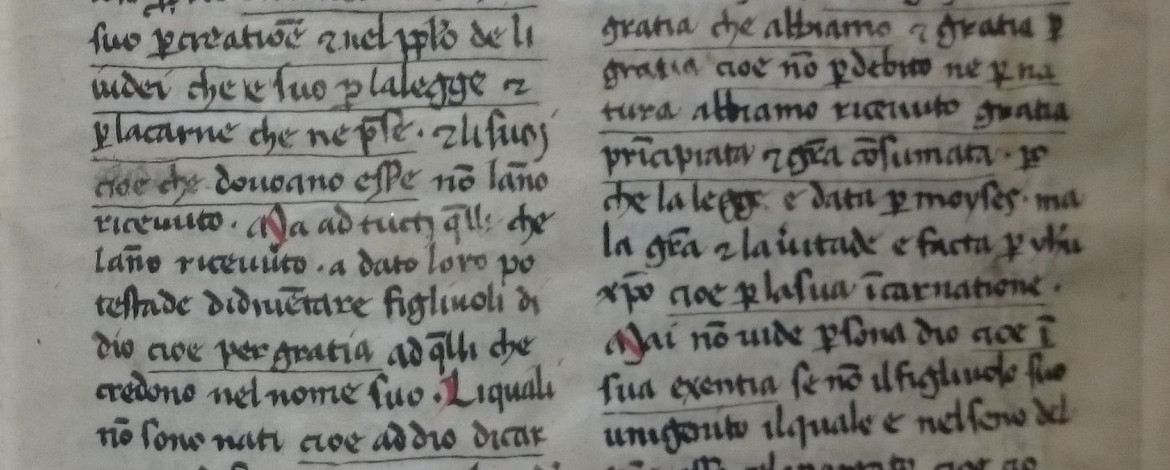 suo p creatiōe ⁊ nel pplo de li
iudei che e suo p la legge ⁊
p la carne che ne pse. ⁊ li suoi
cioe che douoano esse nō lāno
riceuuto. Ma ad tucti qlli che
lāno riceuuto. a dato loro po
testade di diuētare figliuoli di
dio cioe per gratia ad qlli che
credono nel nome suo. Li quali
nō sono nati cioe ad dio dicar
gratia che abbiamo ⁊ gratia p
gratia cioe nō p debito ne p na
tura abbiamo riceuuto gratia
prīcipiata ⁊ gr̄a cōsumata. p
che la legge e data p moyses. ma
la gr̄a ⁊ la ūitade e facta p yhu
xpō cioe p la sua īcarnatione.
Mai nō uide psona dio cioe ī
sua exentia se nō il figliuolo suo
unigenito il quale e nel seno del